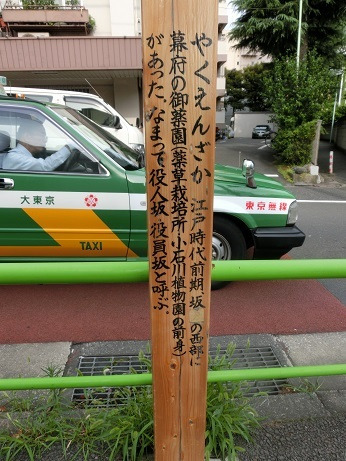 やくえんざか
江戸時代前期、坂の西部に
幕府の御薬園(薬草栽培所小石川植物園の前身)
があった、なまって役人坂、役員坂と呼ぶ、
大東京
TAXI
東京無線